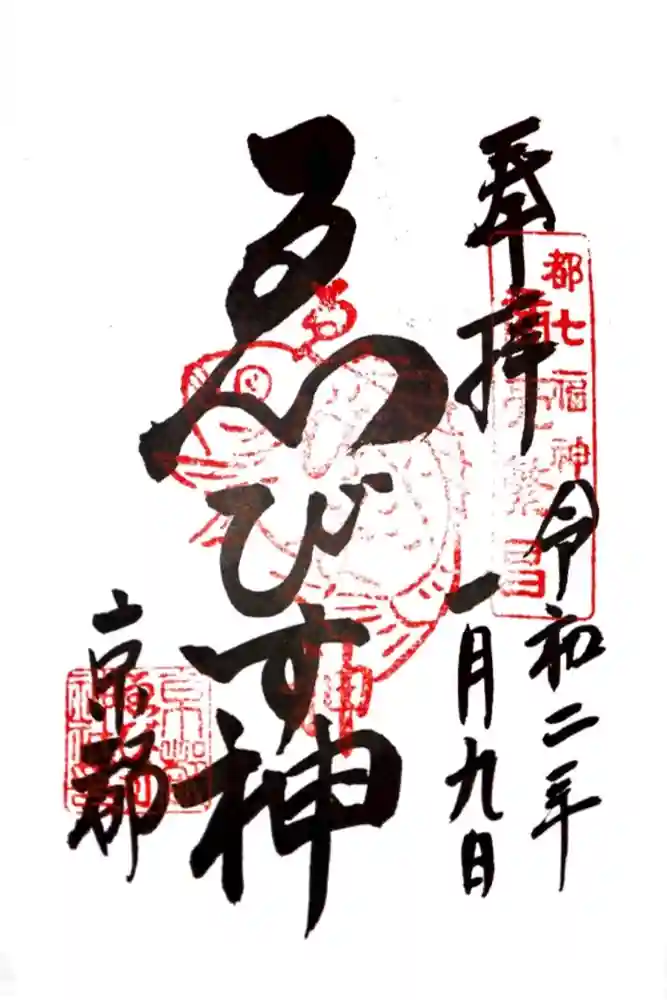 奉拝
都七福神
商売繁昌
令和二年
一月九日
ゑびす神
京都